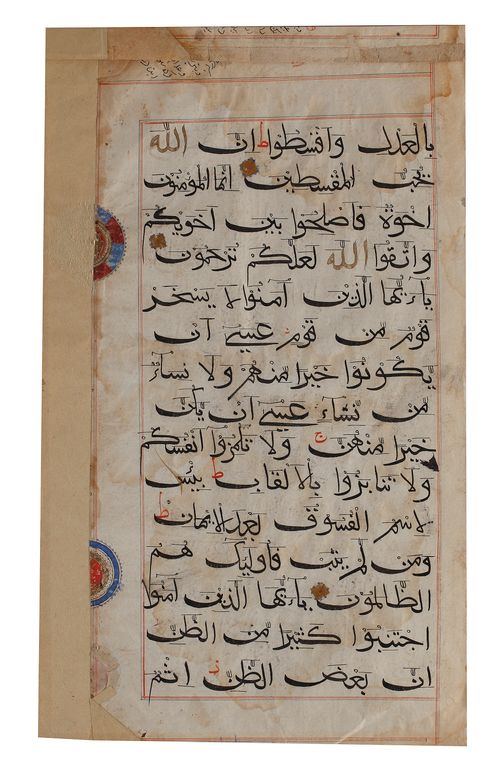 بالعدل واقسطوا ط ان الله
يحب المقسطين انما المؤمنون
اخوة فاصلحوا بين اخويكم
واتقوا الله لعلكم ترحمون
ياءيها الذين امنوا لا يسخر
قوم من قوم عسى ان
يكونوا خيرا منهم ولا نساء
من نساء عسى ان يكن
خيرا منهن ج ولا تلمزوا انفسكم
ولا تنابزوا بالالقاب ط بئس
الاسم الفسوق بعد الايمان ط
ومن لم يتب فاولئك هم
الظالمون ياءيها الذين امنوا
اجتنبوا كثيرا من الظن
ان بعض الظن اثم